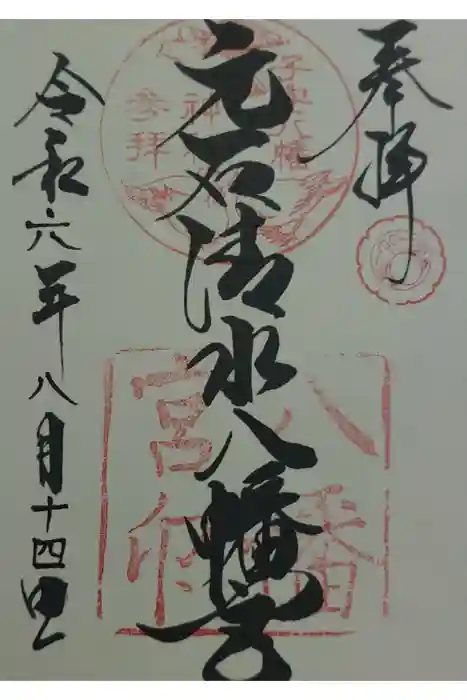 奉拝
元石清水八幡宮
令和六年八月十四日
参拝
八幡
宮印